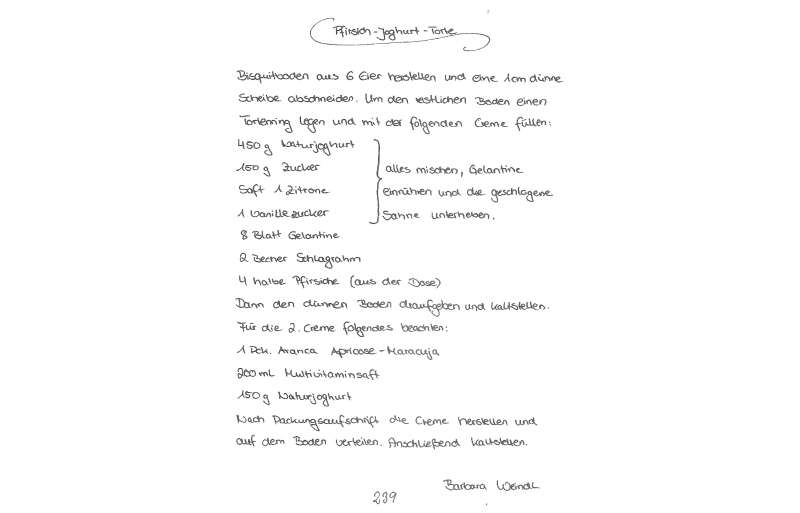 Pfirsich-Joghurt-Torte
Bisquitboden aus 6 Eier herstellen und eine 1cm dünne
Scheibe abschneiden. Um den restlichen Boden einen
Tortenring legen und mit der folgenden Creme füllen:
450 g Naturjoghurt
150 g Zucker
Saft 1 Zitrone
1 Vanillezucker
alles mischen, Gelantine
einrühren und die geschlagene
Sahne unterheben.
8 Blatt Gelantine
2 Becher Schlagrahm
4 halbe Pfirsiche (aus der Dose)
Dann den dünnen Boden draufgeben und kaltstellen.
Für die 2. Creme folgendes beachten:
1 Pck. Aranca Apricose-Maracuja
200 mL Multivitaminsaft
150 g Naturjoghurt
Nach Packungsaufschrift die Creme herstellen und
auf dem Boden verteilen. Anschließend kaltstellen.
Barbara Weindl
239